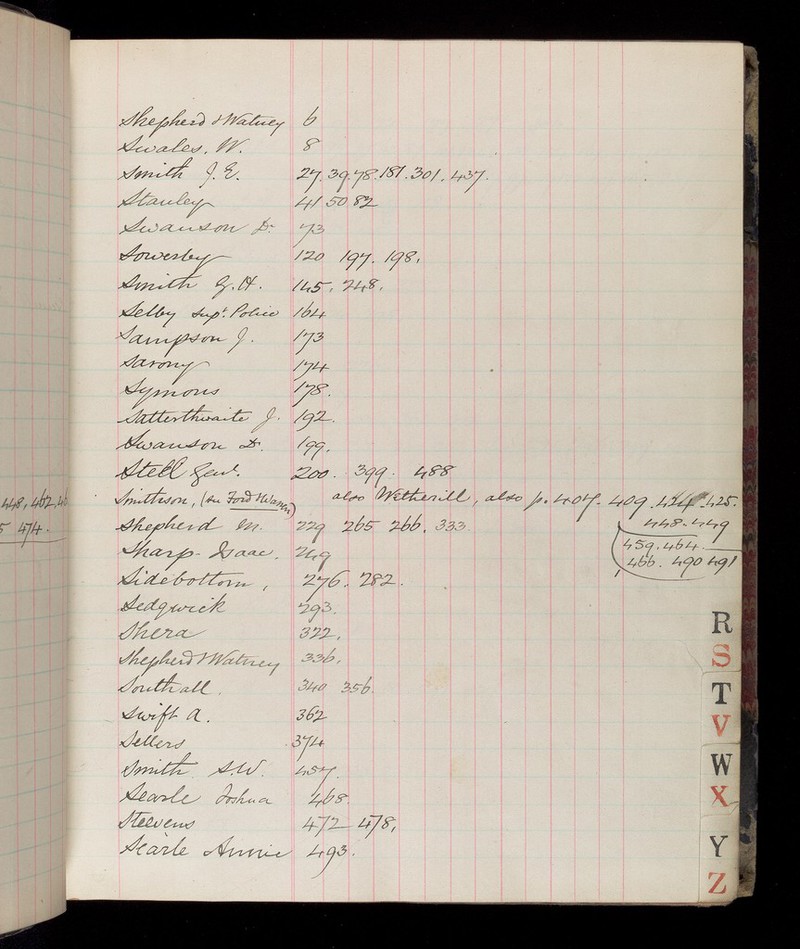 448, 462, 46
5 474.
Shepherd & Watney 6
Swales. W. 8
Smith J. E. 27. 39 78. 181. 301. 437.
Stanley 41 50 82
Swanson Dr 73
Sowerby 120 197. 198.
Smith G. H. 145. 248.
Selby Supt. Police 164
Sampson J. 173
Sarony 174
Symons 178.
Satterthwaite J. 192.
Swanson Dr. 199.
Stell Geo. 200. 399. 488
Smithson, (see Ford & Warren) also Wetherill, also p. 407. 409. 424. 425.
448. 449
459. 464.
466. 490 491
Shepherd M. 229 265 266. 333
Sharp Isaac. 249
Sidebottom, 276. 282.
Sedgwick 293.
Shera 322.
Shepherd & Watney 336.
Southall. 340 356
Swift A. 362
Sellers 374
Smith. S. W. 457.
Searle Joshua 468.
Steevens 472 478.
Searle Annie 493.
R
S
T
V
W
X
Y
Z